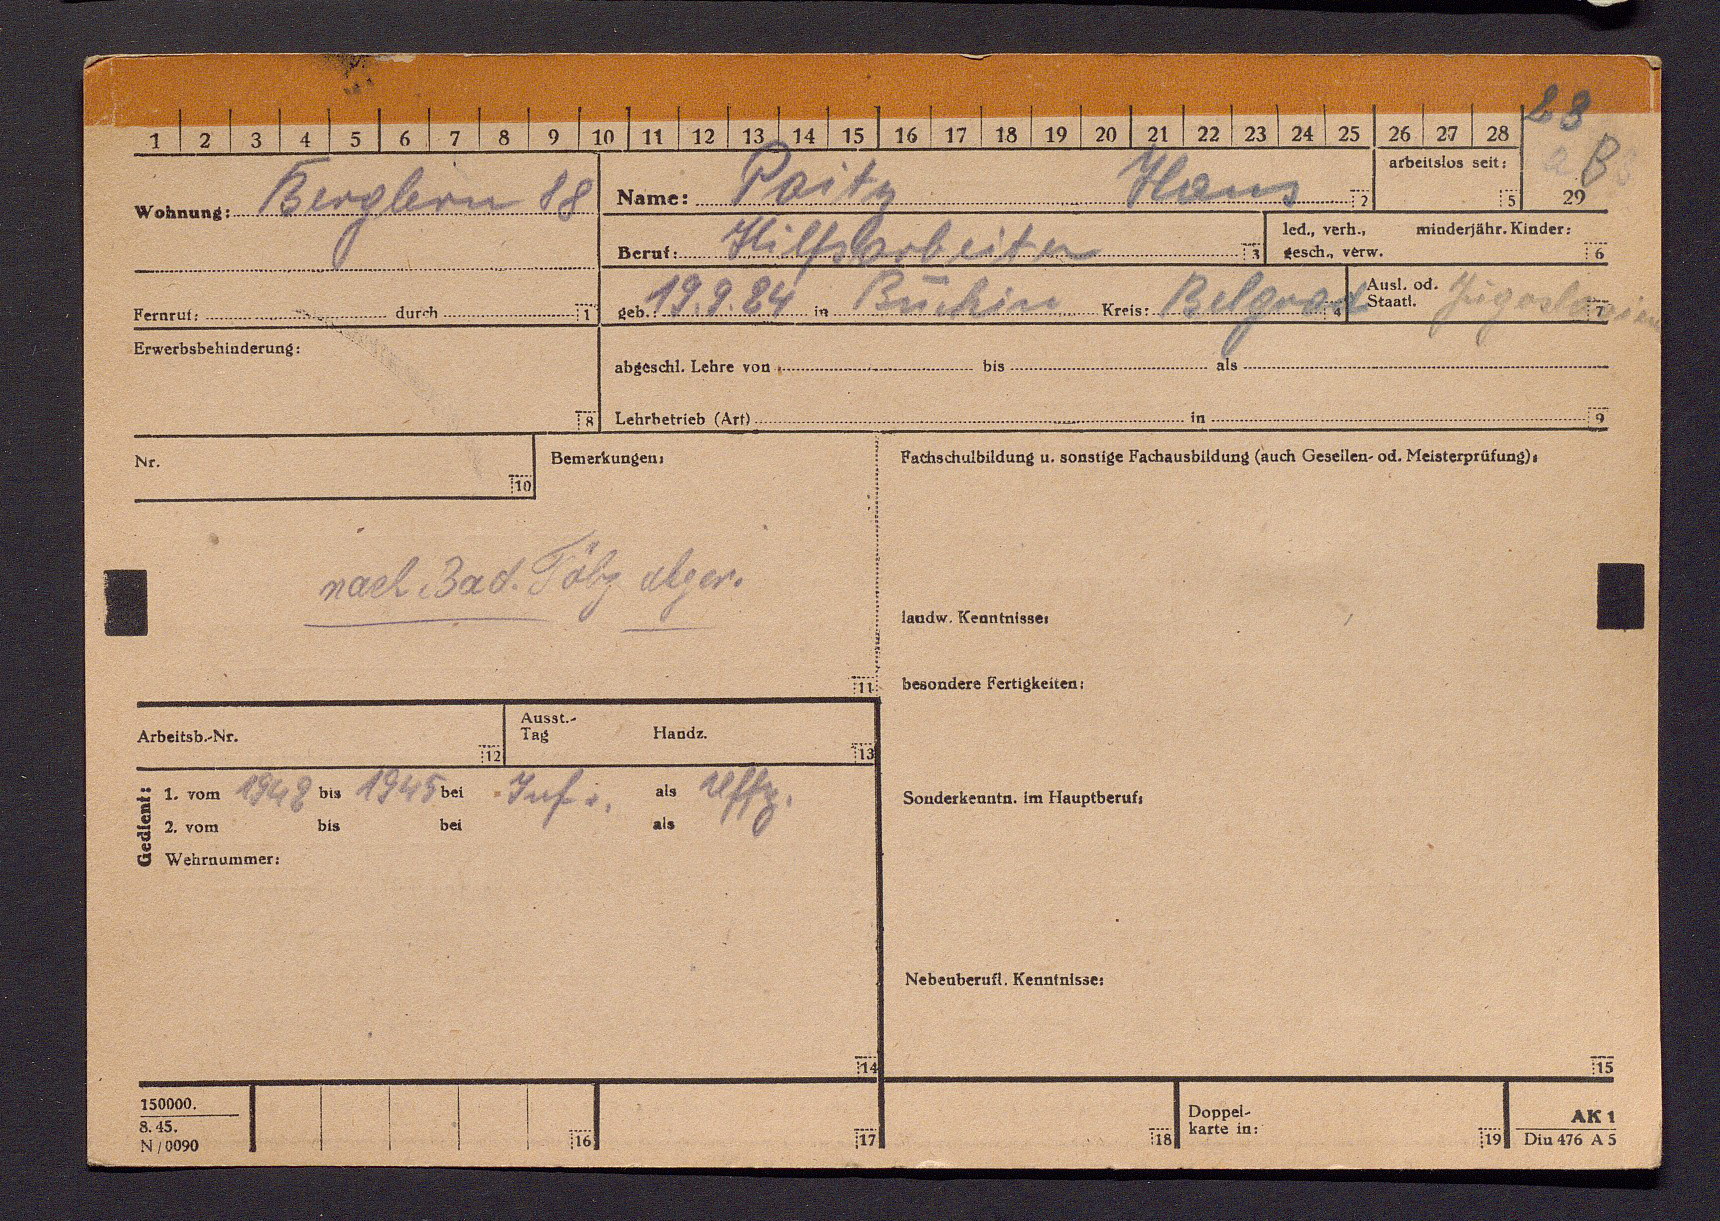 28
1 2 3 4 5 6 7 8 9 10 11 12 13 14 15 16 17 18 19 20 21 22 23 24 25 26 27 28
B
29
Wohnung: Berglern 88
Name: Paitz Hans 2
arbeitslos seit: 5
Beruf: Hilfsarbeiter 3
led., verh., minderjähr. Kinder:
gesch., verw. 6
Fernruf: durch 1
geb. 19.9.24 in Kreis: Belgrad 4
Ausl. od.
Staatl. Jugoslavien 7
Erwerbsbehinderung:
8
abgeschl. Lehre von bis als
Lehrbetrieb (Art) in 9
Nr.
10
Bemerkungen:
nach Bad. Tölz abger.
11
Fachschulbildung u. sonstige Fachausbildung (auch Gesellen- od. Meisterprüfung):
landw. Kenntnisse:
besondere Fertigkeiten:
Arbeitsb.-Nr.
12
Ausst.-
Tag Handz.
13
Gedient:
1. vom 1942 bis 1945 bei Inf. als Uffz.
2. vom bis bei als
Wehrnummer:
14
Sonderkenntn. im Hauptberuf:
Nebenberufl. Kenntnisse:
15
150000.
8. 45.
N / 0090
16
17
18
Doppel-
karte in:
19
AK 1
Din 476 A 5